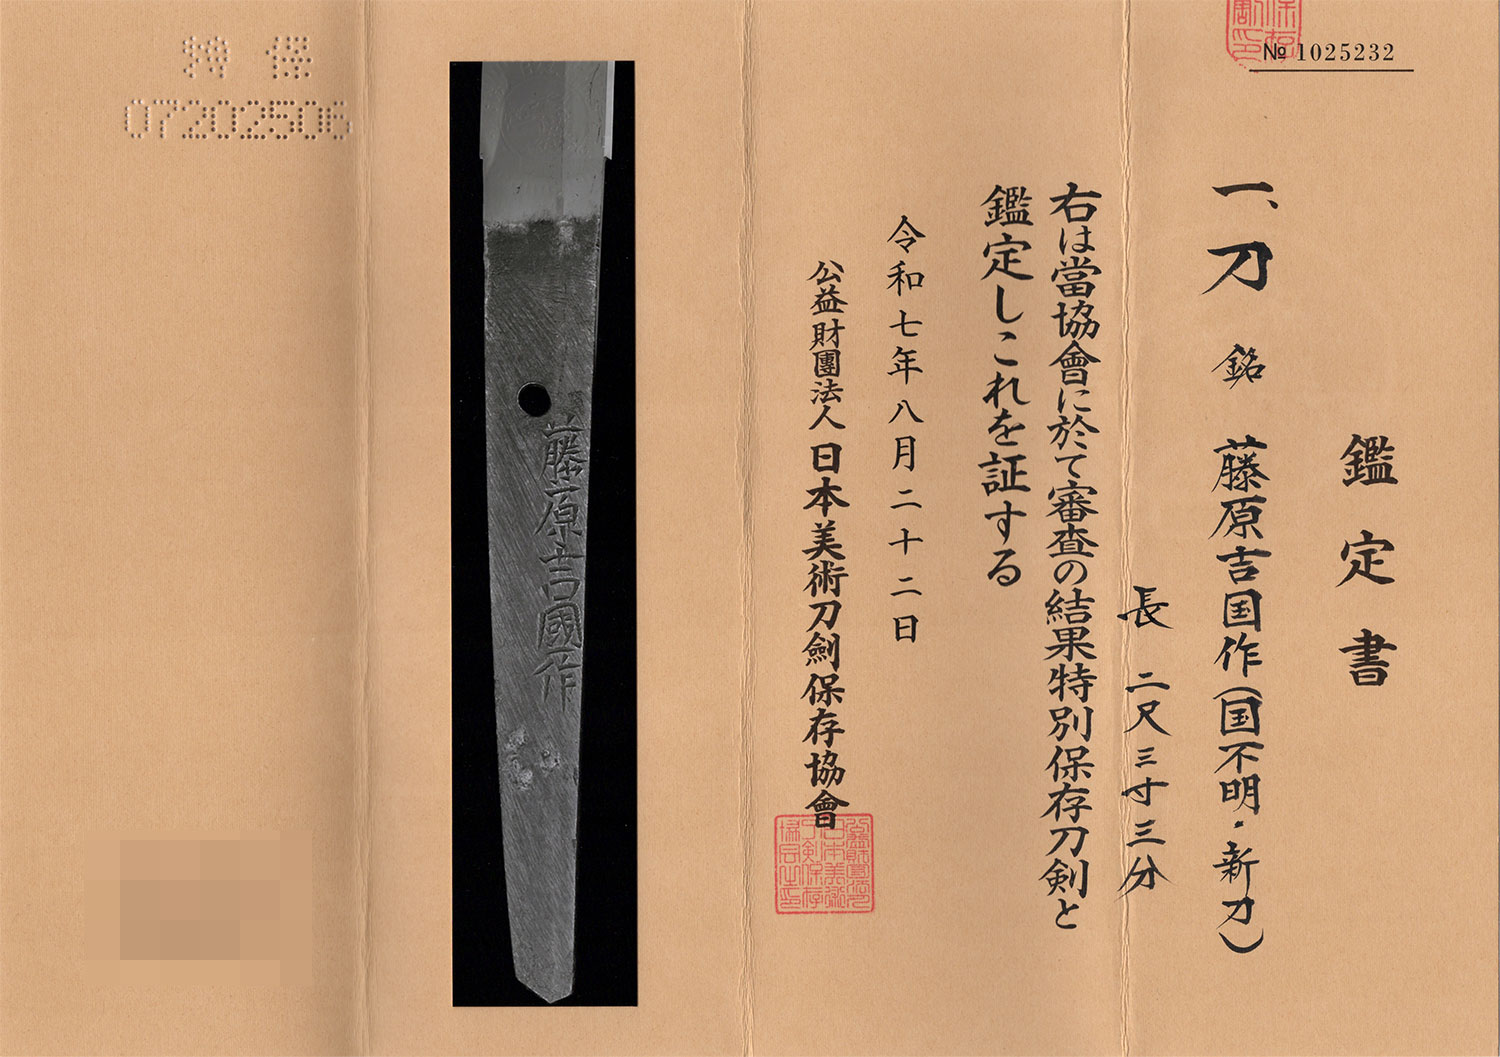 № 1025232
鑑定書
一、刀 銘 藤原吉国作(国不明・新刀)
長 二尺三寸三分
右は當協會に於て審査の結果特別保存刀剣と
鑑定しこれを証する
令和七年八月二十二日
公益財團法人日本美術刀劍保存協會
藤原吉國作
特 保
07202506